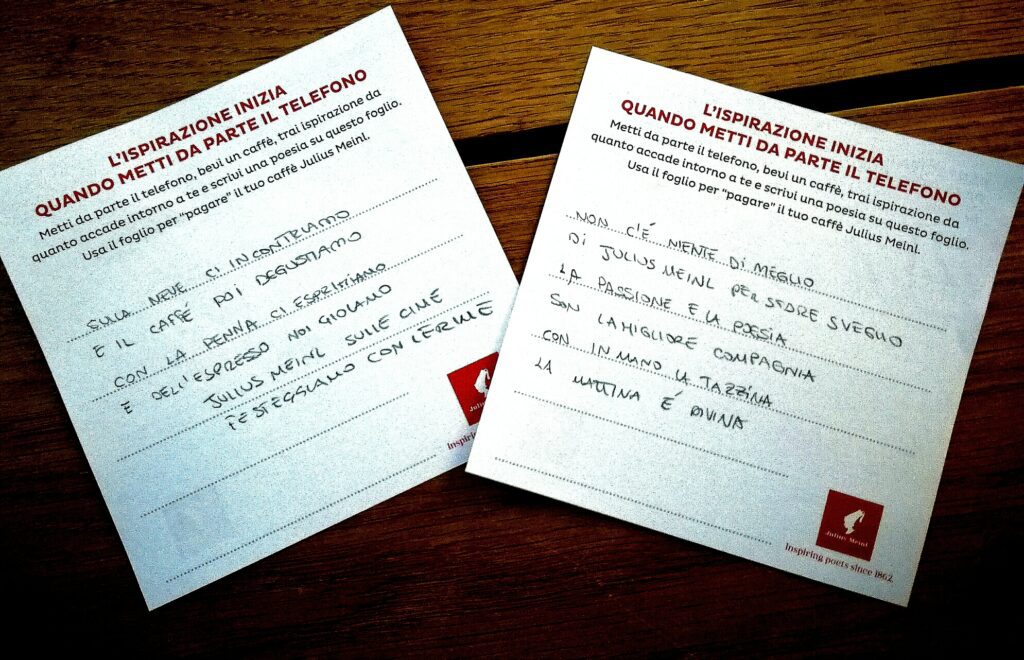 L'ISPIRAZIONE INIZIA
QUANDO METTI DA PARTE IL TELEFONO
Metti da parte il telefono, bevi un caffè, trai ispirazione da
quanto accade intorno a te e scrivi una poesia su questo foglio.
Usa il foglio per "pagare" il tuo caffè Julius Meinl.
SULLA NEVE CI INCONTRIAMO
E IL CAFFÉ POI DEGUSTIAMO
CON LA PENNA CI ESPRIMIAMO
E DELL'ESPRESSO NOI GIOIAMO
JULIUS MEINL SULLE CIME
FESTEGGIAMO CON LE RIME
Julius Meinl
Inspiring
L'ISPIRAZIONE INIZIA
QUANDO METTI DA PARTE IL TELEFONO
Metti da parte il telefono, bevi un caffè, trai ispirazione da
quanto accade intorno a te e scrivi una poesia su questo foglio.
Usa il foglio per "pagare" il tuo caffè Julius Meinl.
NON C'É NIENTE DI MEGLIO
DI JULIUS MEINL PER STARE SVEGLIO
LA PASSIONE E LA POESIA
SON LA MIGLIORE COMPAGNIA
CON IN MANO LA TAZZINA
LA MATTINA É DIVINA
Julius Meinl
Inspiring poets since 1862